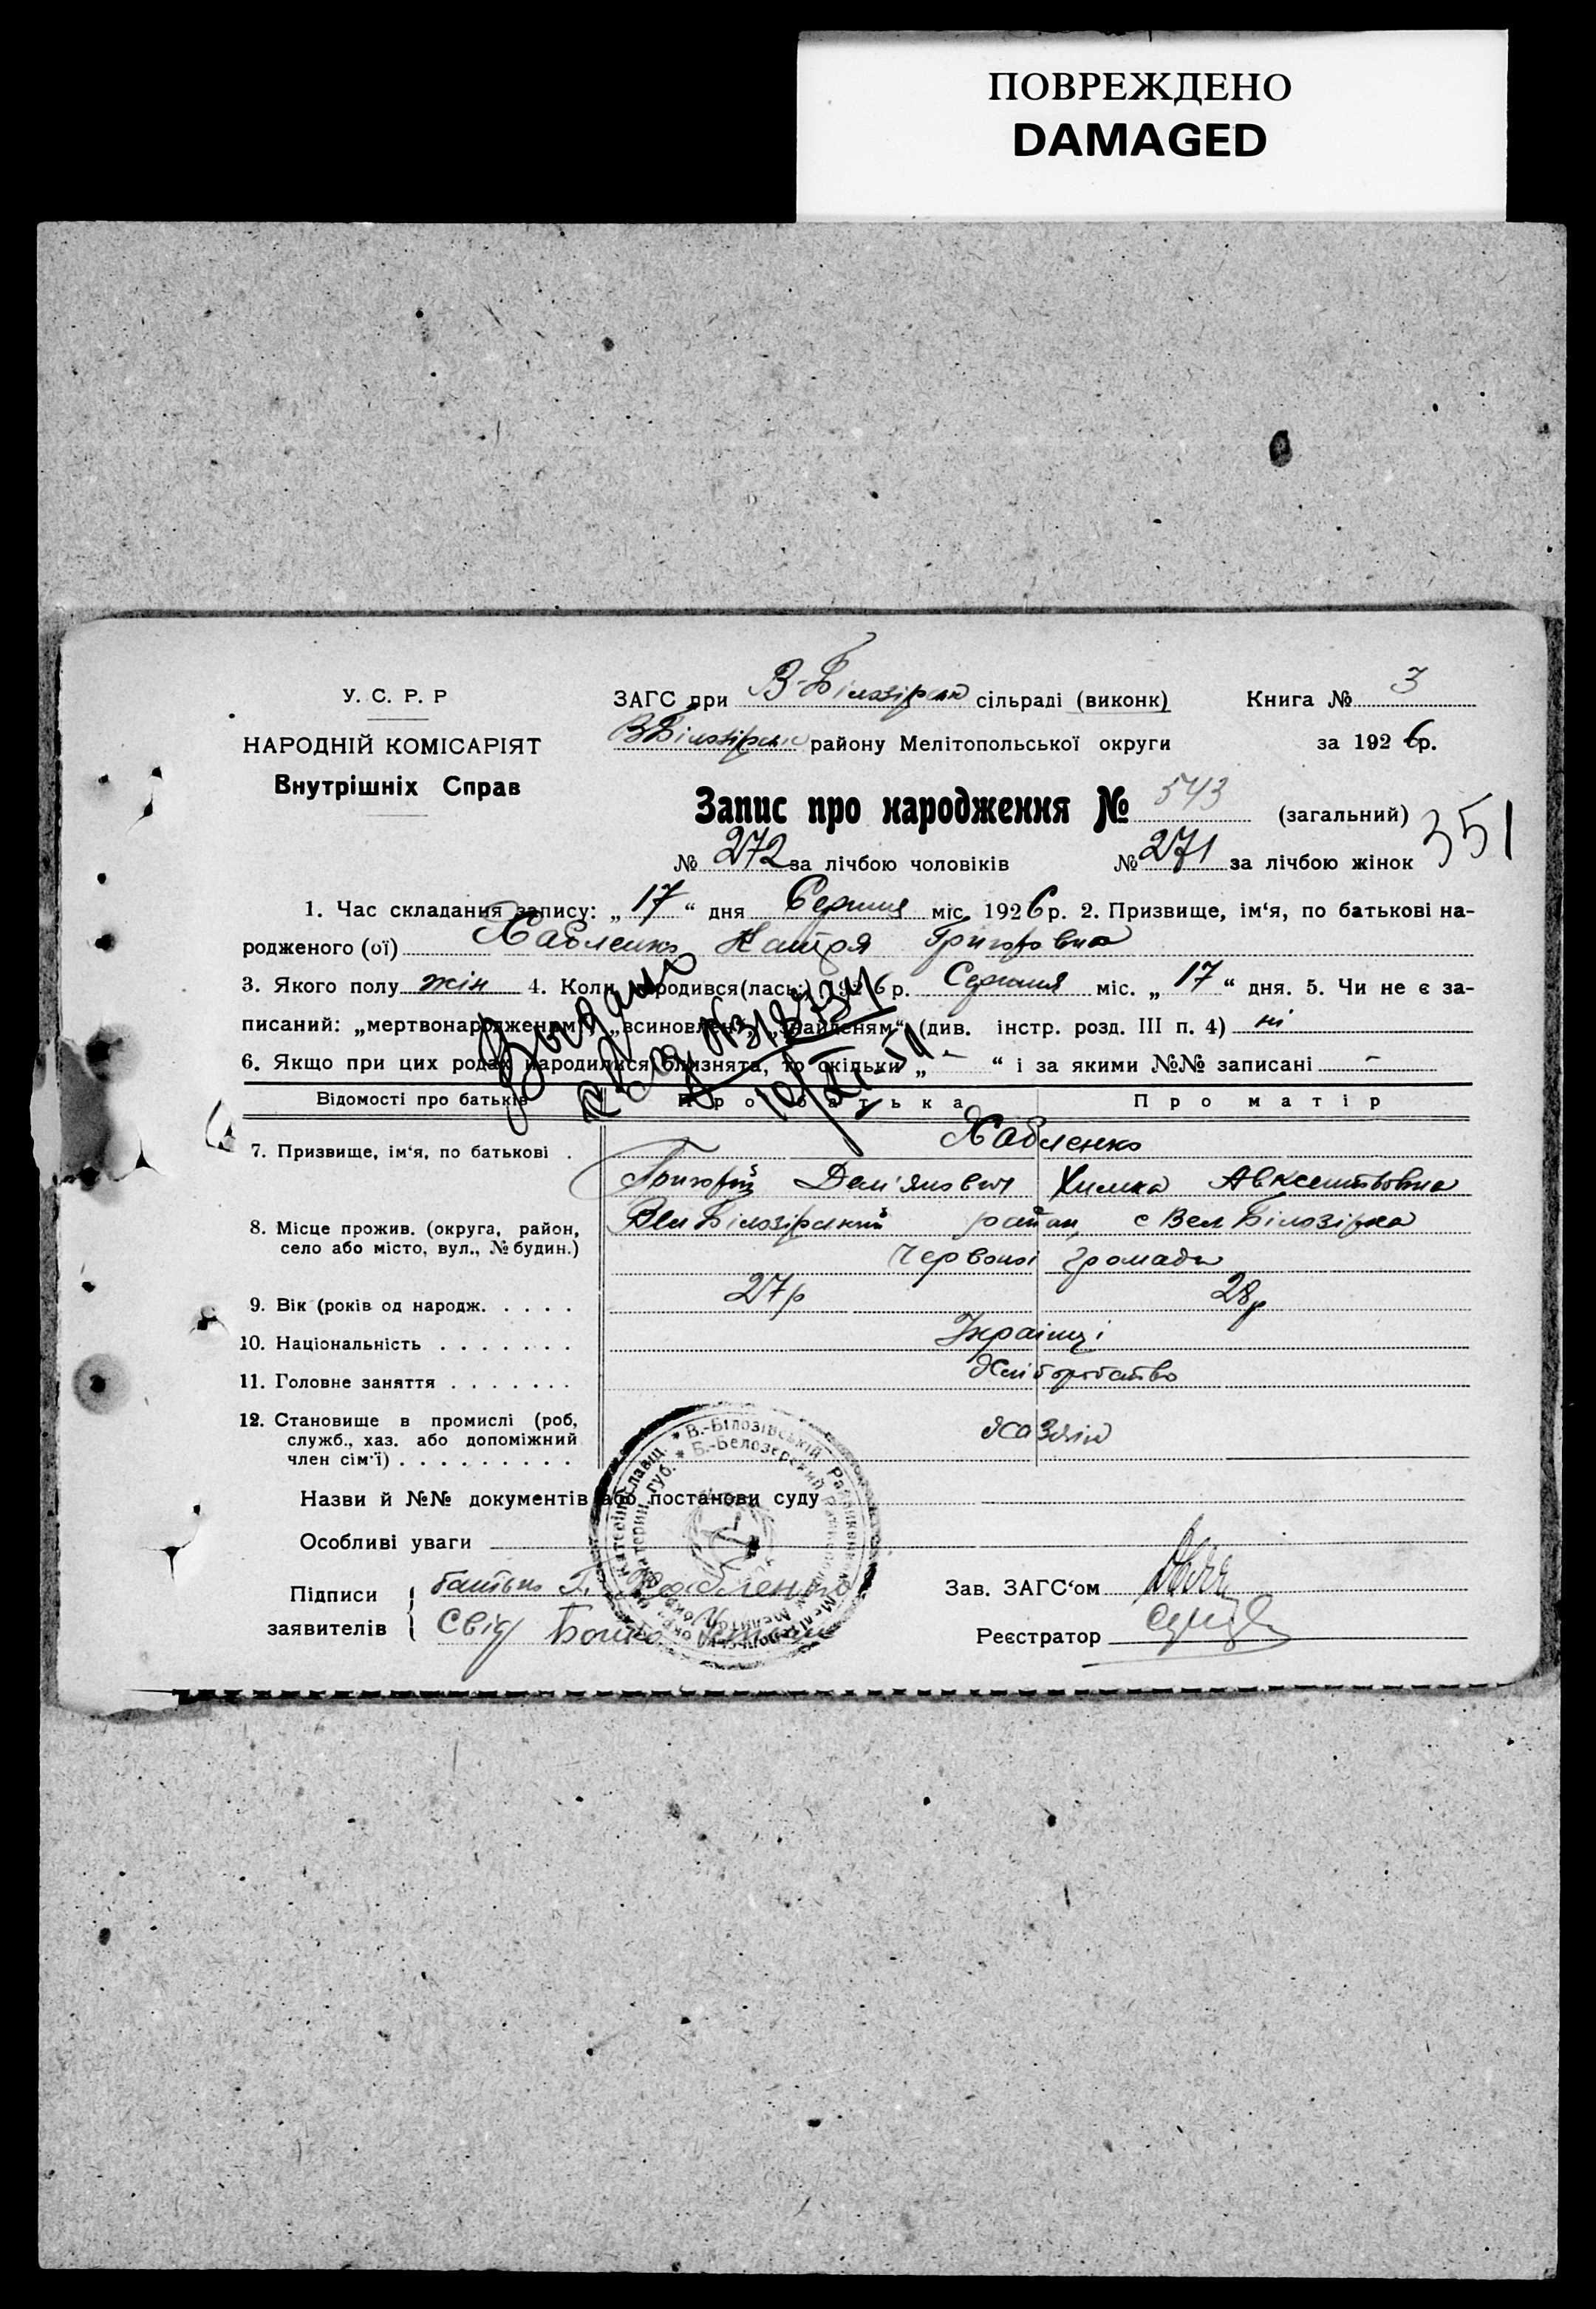 ПОВРЕЖДЕНО
DAMAGED
У. С. Р. Р
НАРОДНІЙ КОМІСАРІЯТ
Внутрішніх Справ
ЗАГС при В-Білозірськ сільраді (виконк) Книга № 3
ВБілозірськ району Мелітопольської округи за 1926р.
Запис про народження № 543 (загальний) 351
№ 272 за лічбою чоловіків № 271 за лічбою жінок
1. Час складання запису: „17“ дня Серпня міс. 1926р. 2. Призвище, ім‘я, по батькові на-
родженого (ої) Хабленко Катря Григоровна
3. Якого полу жін 4. Коли народився(лась) 1926 р. Серпня міс. „17“ дня. 5. Чи не є за-
писаний: „мертвонародженям“, „всиновлен“, „знайденям“ (див. інстр. розд. III п. 4) ні
6. Якщо при цих родах народилися близнята, то скільки „-“ і за якими №№ записані -
Відомості про батьків Про батька Про матір
7. Призвище, ім‘я, по батькові . Хабленко
Григорій Дем'янович Химка Авксентьовна
8. Місце прожив. (округа, район,
село або місто, вул., № будин.)
Вел Білозірський район, с Вел Білозірка
Червоної громади
9. Вік (років од народж. . . . . 27р 28р
10. Національність . . . . . . . Українці
11. Головне заняття . . . . . . . Хліборобство
12. Становище в промислі (роб,
служб., хаз. або допоміжний
член сім‘ї) . . . . . . . . . Хазяїн
Назви й №№ документів або постанови суду
Особливі уваги
Підписи
заявителів
батько Г. Хабленко
Свід Бойко
Зав. ЗАГС‘ом
Реєстратор